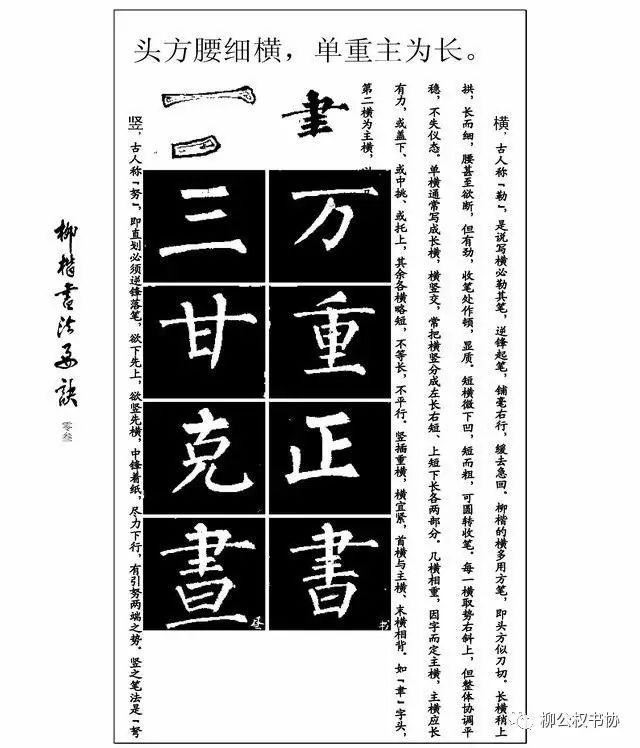 头方腰细横，单重主为长。
横，古人称“勒”，是说写横必勒其笔，逆锋起笔，铺毫右行，缓去急回。柳楷的横多用方笔，即头方似刀切。长横稍上
拱，长而细，腰甚至欲断，但有劲，收笔处作顿，显质。短横微下凹，短而粗，可圆转收笔。每一横取势右斜上，但整体协调平
稳，不失仪态。单横通常写成长横，横竖交，常把横竖分成左长右短、上短下长各两部分。几横相重，因字而定主横，主横应长
有力，或盖下、或中挑、或托上，其余各横略短，不等长，不平行。竖插重横，横宜紧，首横与主横、末横相背。如“聿”字头，
第二横为主横，
聿
万
重
正
書
书
三
甘
克
晝
昼
竖，古人称“努”，即直划必须逆锋落笔，欲下先上，欲竖先横，中锋着纸，尽力下行，有引努两端之势。竖之笔法是“努
柳楷书法要诀
零叁
柳公权书协